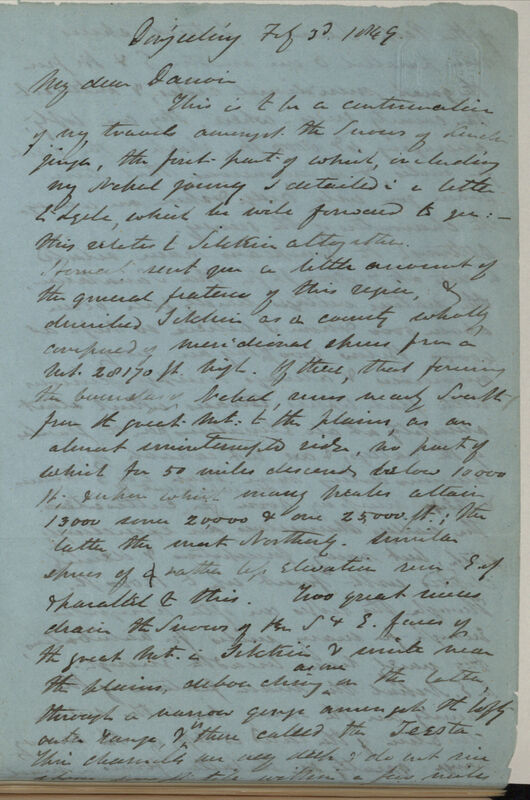 Dorjeeling Feb 3d. 1849.
My dear Darwin
This is to be a continuation
of my travels amongst the Snows of Kinchin
jinga, the first part of which, including
my Nepal journey I detailed in a letter
to Lyell, which he will forward to you: —
this relates to Sikkim altogether.
sent you a little account of
the general features of this region, &
described Sikkim as a county wholly
composed of meridional spurs from a
Mt. 28170 ft high. Of these, that forming
the boundary Nepal, runs nearly South
from the great Mt. to the plains, as an
almost uninterrupted ridge, no part of
which for 50 miles descends below 10000
ft, & upon which many peaks attain
13000 some 20000 & one 25000 ft.; the
latter the most Northerly. similar
spurs of rather less elevation run E. of
& parallel to this. Two great rivers
drain the Snows of the S & E. faces of
the great Mt. in Sikkim & unite near
the plains, debouching as one on the latter,
through a narrow gorge amongst the lofty
outer range, & there called the Teesta
this channels are very deep & do not rise
within a few miles